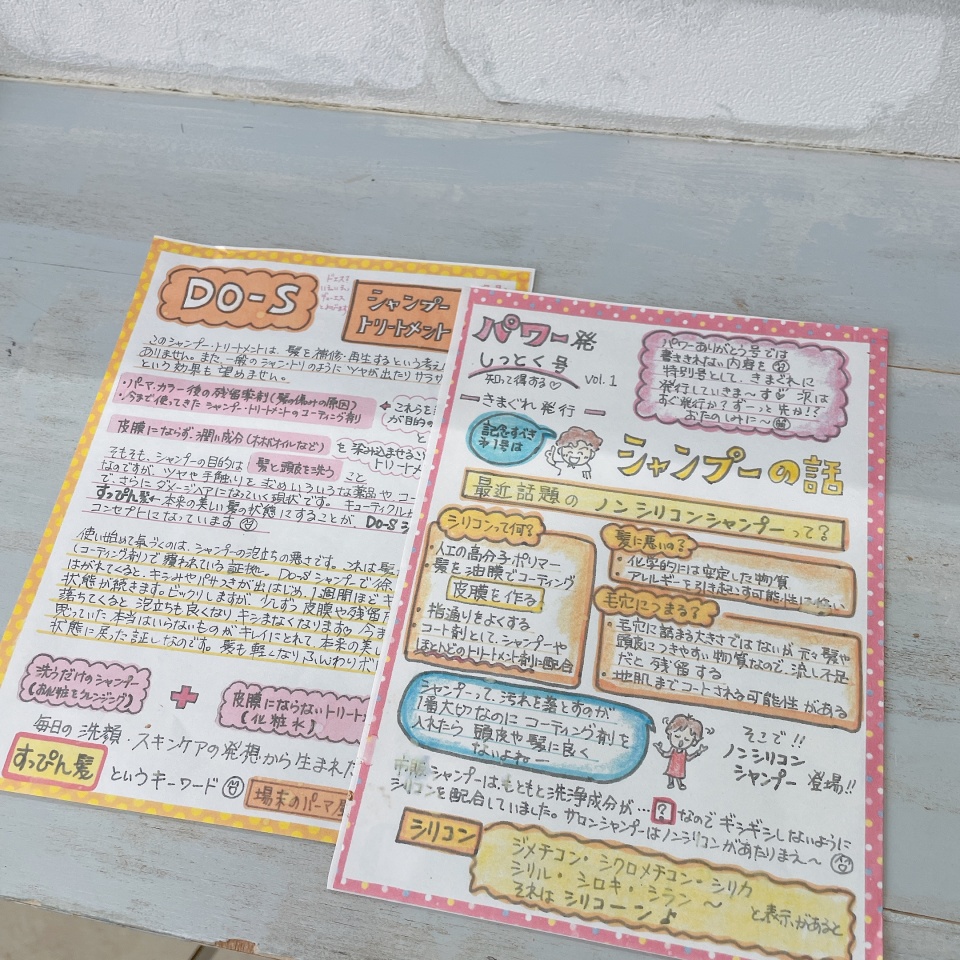 DO-S
シャンプー
トリートメント
このシャンプー・トリートメントは、髪を補修・再生するという考え
ありません。また、一般のシャン・トリのように ツヤが出たり サラサ
という効果も望めません。
・パーマ・カラー後の残留薬剤(髪の傷みの原因)
・今まで使ってきた シャンプー・トリートメントのコーティング剤
← これらを
が目的の
皮膜にならず、潤い成分(ホホバオイルなど)
を染み込ませる
トリートメ
そもそも、シャンプーの目的は 髪と頭皮を洗う こと
なのですが、ツヤや手触りを求め いろいろな薬品や コー
で、さらにダメージUPになっていく現状です。キューティクルが
すっぴん髪=本来の美しい髪の状態にすることが、DO-S
コンセプトになっています
使い始めて気づくのは、シャンプーの泡立ちの悪さです。これは髪
(コーティング剤)で覆われている証拠。DO-Sシャンプーで徐
はがれてくると、キシみやパサつきが出はじめ、1週間ほどキ
状態が続きます。ビックリしますが、少しずつ皮膜や残留
落ちてくると 泡立ちも良くなり、キシまなくなります 今ま
思っていた 本当はいらないものがキレイにとれて、本来の美し
状態に戻った証しなのです。髪も軽くなり ふんわりボリ
洗うだけのシャンプー
(お化粧をクレンジング)
+
皮膜にならないトリート
(化粧水)
毎日の洗顔・スキンケアの発想から生まれた
すっぴん髪 というキーワード
場末のパーマ屋
パワー発
しっとく号
知って得する♡ vol.1
― きまぐれ発行 ―
パワーありがとう号では
書ききれない内容を
特別号として、きまぐれに
発行していきま〜す 次は
おたのしみに〜
記念すべき
第1号は
シャンプーの話
最近話題の ノンシリコンシャンプーって?
シリコンって何?
・人工の高分子ポリマー
・髪を油膜でコーティング
皮膜を作る
・指通りをよくする
・コート剤として、シャンプーや
ほとんどのトリートメント剤に配合
髪に悪いの?
・化学的には安定した物質
アレルギーを引き起こす可能性は低い
毛穴につまる?
・毛穴に詰まる大きさではないが、元々髪や
頭皮につきやすい物質なので、流し不足
だと 残留する
・地肌までコートされる可能性がある
シャンプーって、汚れを落とすのが
1番大切なのに コーティング剤を
入れたら 頭皮や髪に良く
ないよねー
そこで!!
ノンシリコン
シャンプー 登場!!
市販シャンプーは、もともと洗浄成分が…?なので ギシギシしないように
シリコンを配合していました。サロンシャンプーはノンシリコンがあたりまえ〜
シリコン
ジメチコン・シクロメチコン・シリカ
シリル・シロキ・シラン 〜
と表示があると
それは シリコーン♪